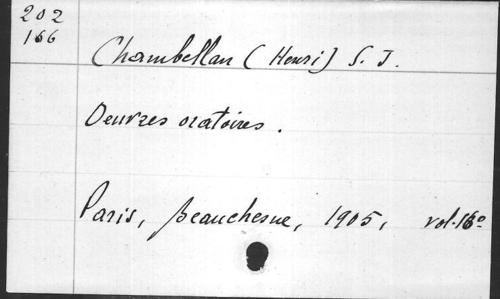 202
166
Chambellan (Henri) S. J.
Oeuvres oratoires.
Paris, Beauchesne, 1905, vol. 16º